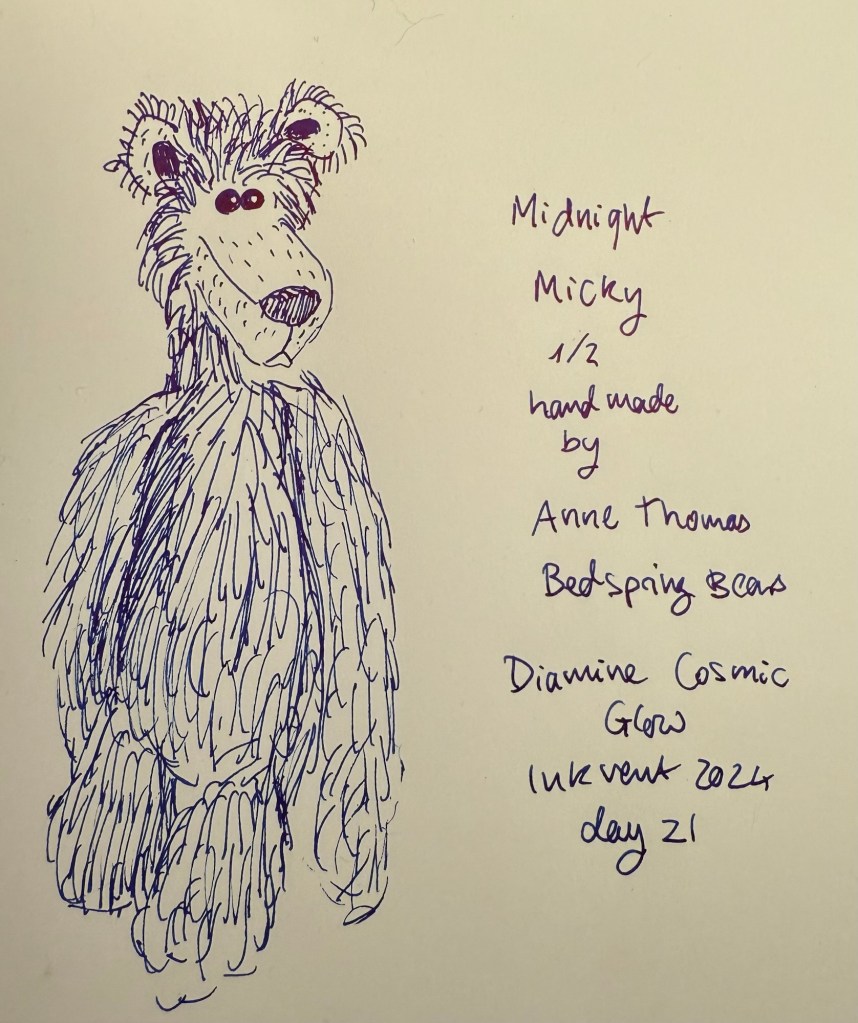 Midnight
Micky
1/2
handmade
by
Anne Thomas
Bedspring Bears
Diamine Cosmic
Glow
Inkvent 2024
day 21